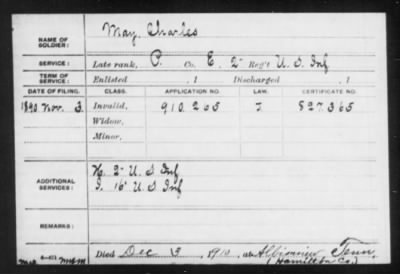 May, Charles
NAME OF SOLDIER:
SERVICE: Late rank, P. Co. E, 2" Reg't U. S. Inf
TERM OF SERVICE: Enlisted , 1 Discharged , 1
DATE OF FILING. CLASS. APPLICATION NO. LAW. CERTIFICATE NO.
1890 Nov. 3. Invalid, 910.265 827.365
Widow,
Minor,
ADDITIONAL SERVICES: H. 2" U. S Inf
16" U. S Inf
REMARKS:
Died Dec 3, 1910, at Tenn.
(Hamilton Co.)
6-431